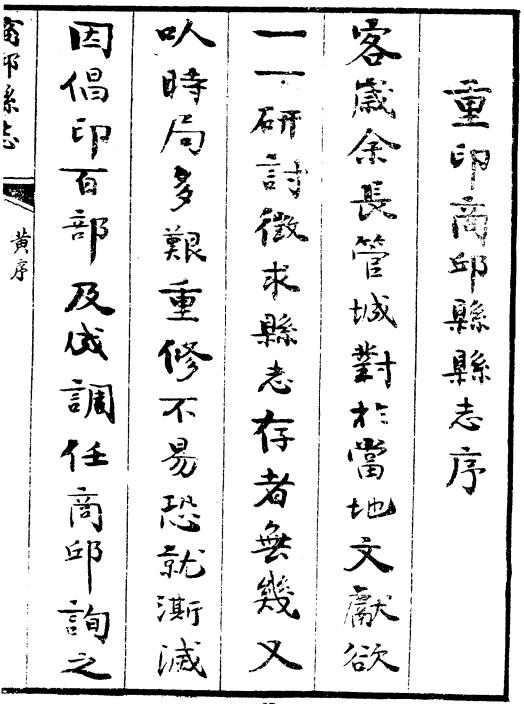 重印商邱縣縣志序
客歲余長管城對於當地文獻欲
一一研討徵求縣志存者無幾又
以時局多艱重修不易恐就澌滅
因倡印百部及成調任商邱詢之
商邱縣志
黄序